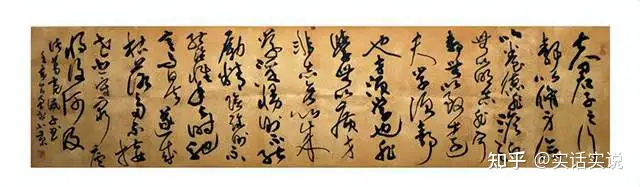 夫君子之行
静以修身俭
以养德非澹泊
无以明志非宁
静无以致远
夫学须静
也才须学也非
学无以广才
非志无以成
学淫慢则不能
励精险躁则不
能治性年与时驰
意与日去遂成
枯落多不接
世悲守穷庐
将复何及
诸葛亮诫子书
知乎 @实话实说